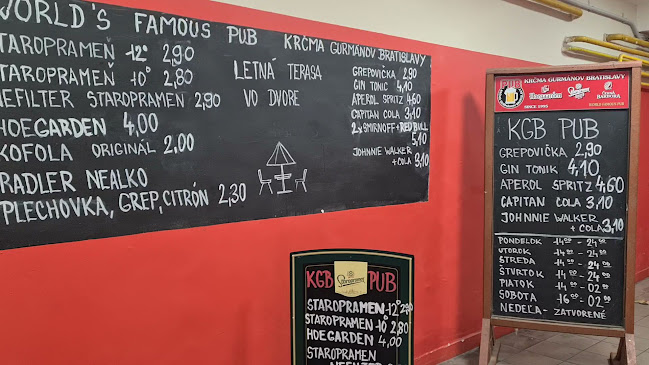 WORLD'S FAMOUS PUB KRČMA GURMÁNOV BRATISLAVY
STAROPRAMEŇ 12° 2,90
STAROPRAMEŇ 10° 2,80
NEFILTER STAROPRAMEN 2,90
HOEGARDEN 4,00
KOFOLA ORIGINÁL 2,00
RADLER NEALKO
PLECHOVKA, GREP, CITRÓN 2,30
LETNÁ TERASA
VO DVORE
GREPOVIČKA 2,90
GIN TONIK 4,10
APEROL SPRITZ 4,60
CAPITAN COLA 3,10
2x SMIRNOFF + RED BULL
5,10
JOHNNIE WALKER
+ COLA 3,10
KGB PUB
Staropramen
STAROPRAMEN 12° 2,90
STAROPRAMEN 10° 2,80
HOEGARDEN 4,00
STAROPRAMEN
PUB
KRČMA GURMÁNOV BRATISLAVY
Hoegaarden
Staropramen
SINCE
WORLD FAMOUS PUB
KGB PUB
GREPOVIČKA 2,90
GIN TONIK 4,10
APEROL SPRITZ 4,60
CAPITAN COLA 3,10
JOHNNIE WALKER
+ COLA 3,10
PONDELOK 1400 - 2400
UTOROK 1400 - 2400
STREDA 1400 - 2400
ŠTVRTOK 1400 - 2400
PIATOK 1400 - 0200
SOBOTA 1600 - 0200
NEDEĽA - ZATVORENÉ